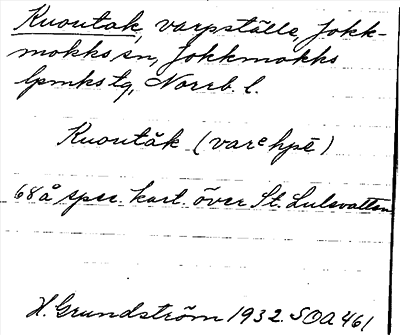 Kuoutak, varpställe, Jokk-
mokks sn, Jokkmokks
lpmks tg, Norrb. l.
Kuoutåk (varᵉhpē)
68 å spec. kart. över St. Lulevatten
H. Grundström 1932. SOA 461